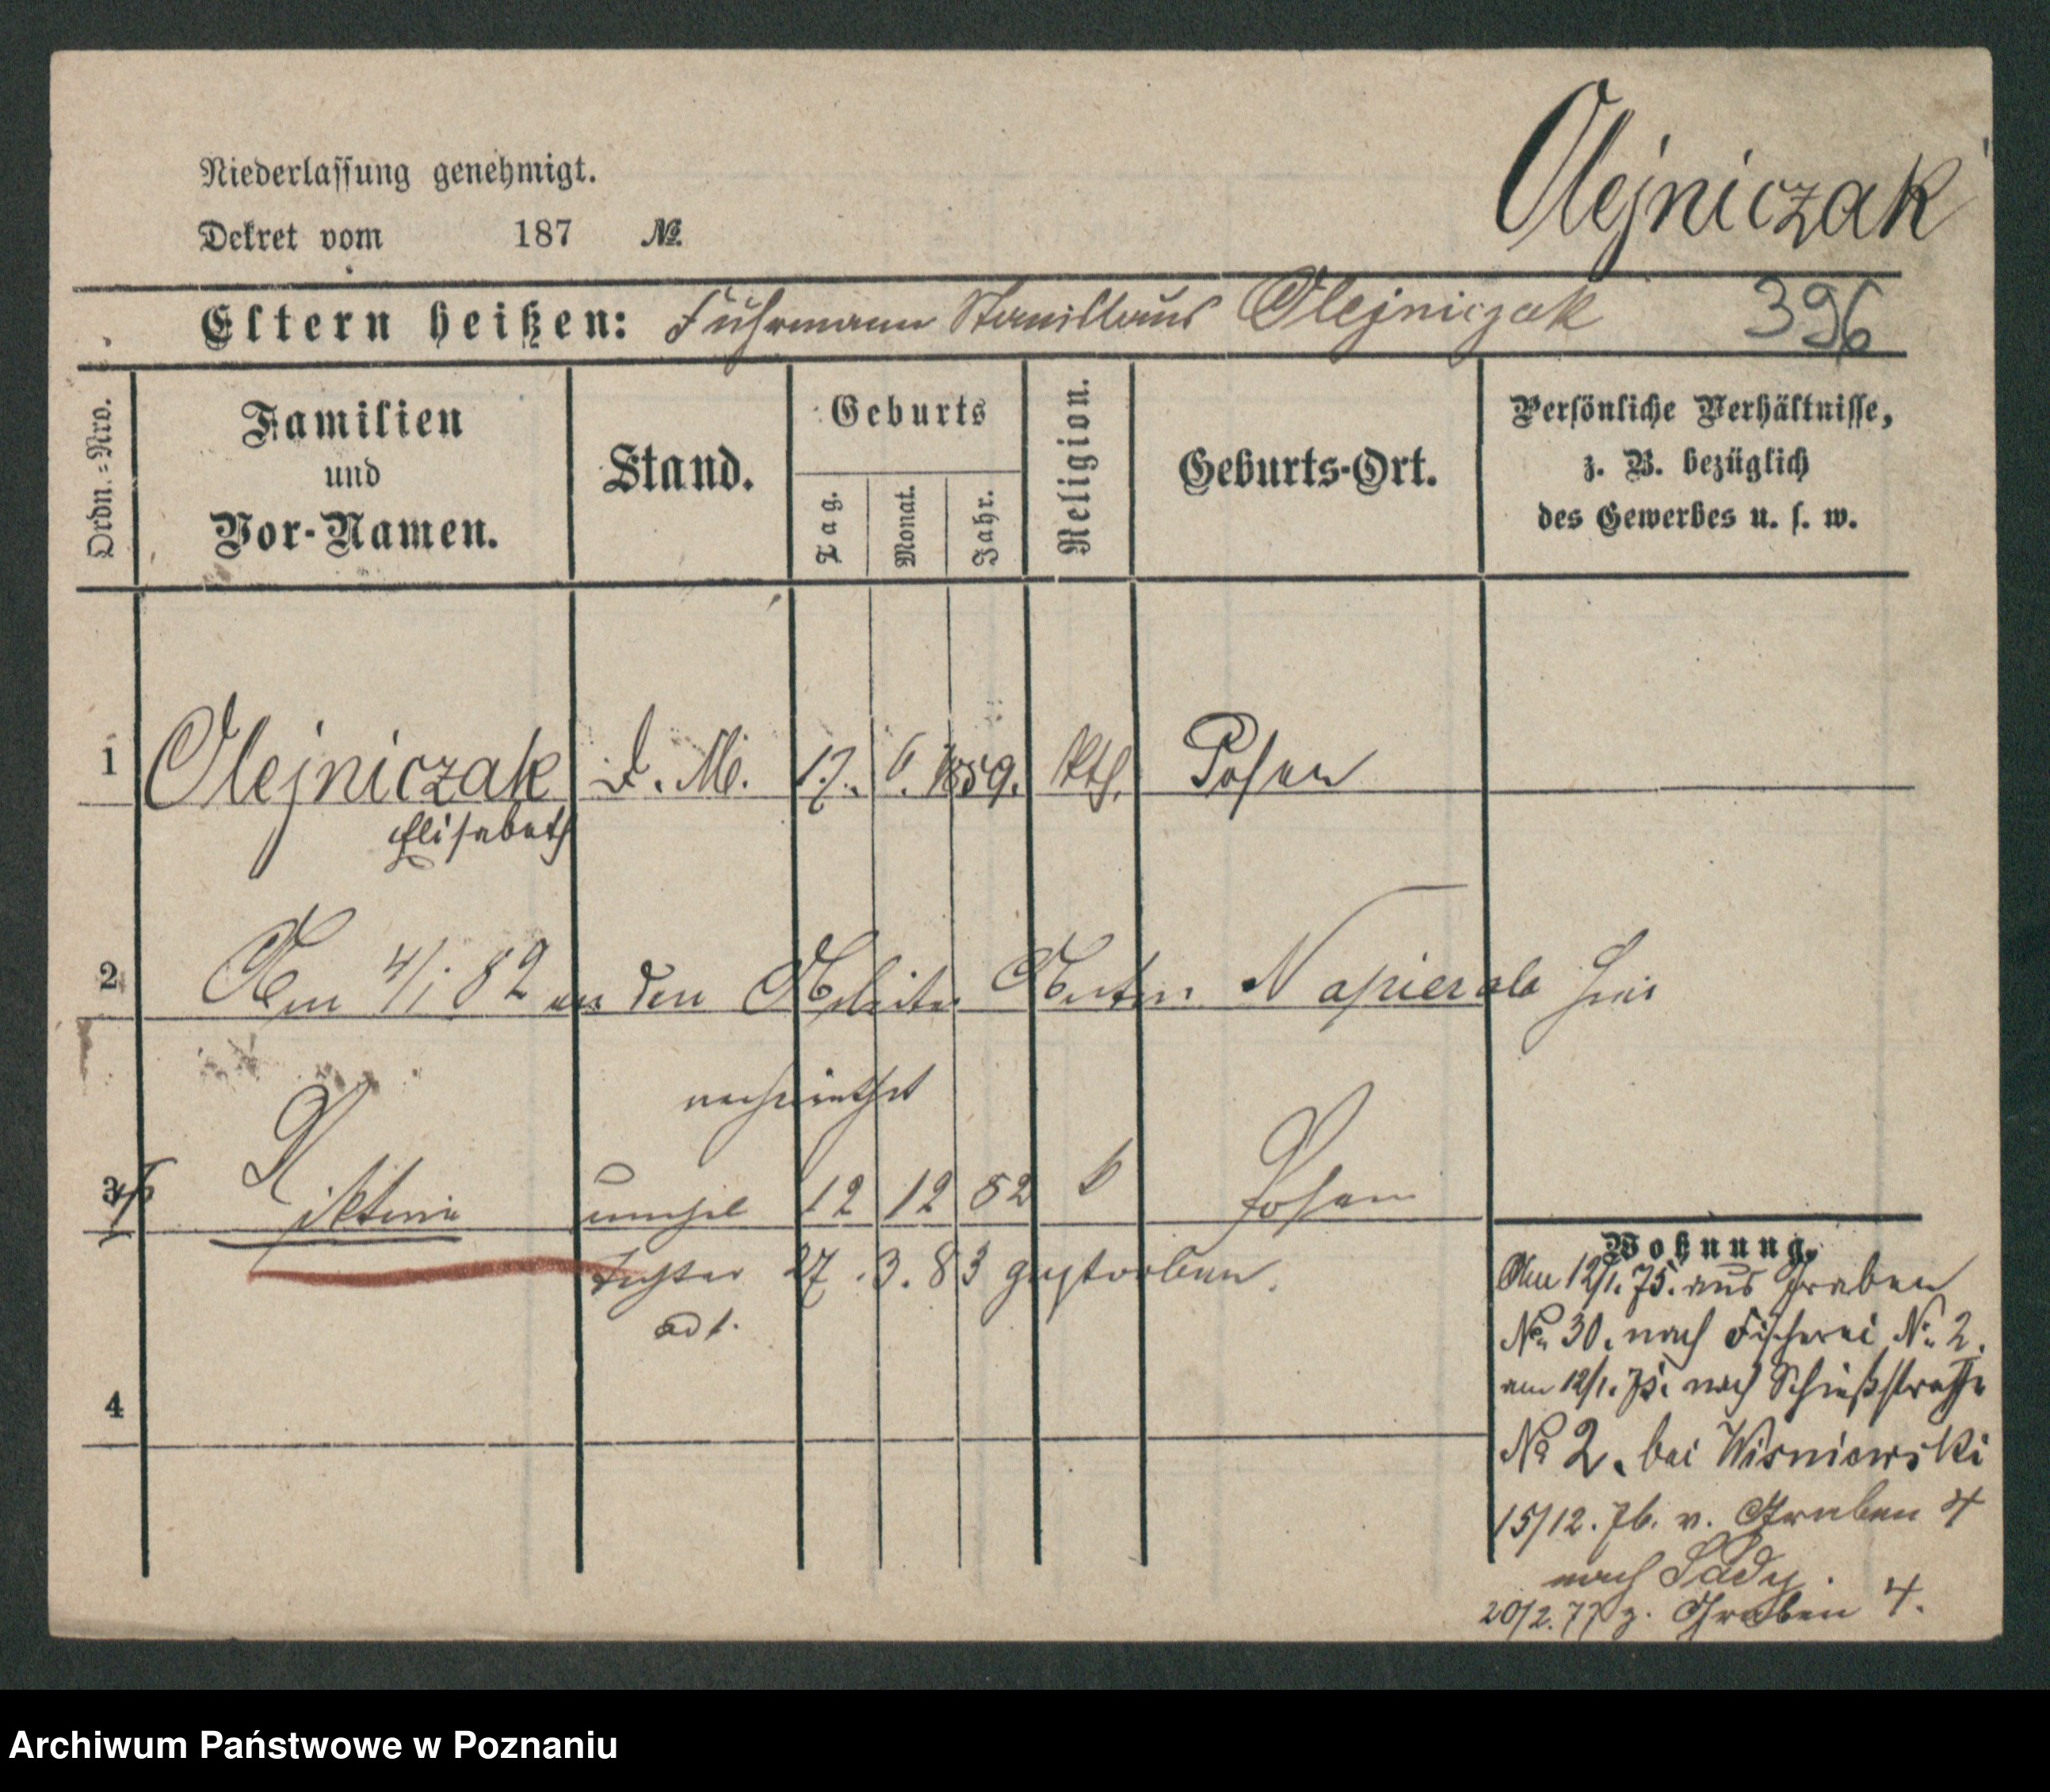 Olejniczak
Niederlassung genehmigt.
Dekret vom 187 №
Eltern heißen: Fuhrmann Stanislaus Olejniczak 396
Ordn.=Nro.
Familien
und
Vor-Namen.
Stand.
Geburts
Tag.
Monat.
Jahr.
Religion.
Geburts-Ort.
Persönliche Verhältnisse,
z. B. bezüglich
des Gewerbes u. s. w.
1 Olejniczak D. M. 17. 6. 1859. kth. Posen
Elisabeth
2 Am 4/1 82 an den Arbeiter Napierala hier
verheirathet
3 Viktoria unehel 12 12 82 k Posen
Tochter 27.3.83 gestorben.
ad 1.
4
Wohnung.
Am 12/1. 75. aus Graben
No 30. nach Fischerei No 2.
am 12/1. 75. nach Schießstraße
No 2. bei Wisniewski
15/12. 76. v. Graben 4
nach Sady.
20/2. 77 z. Graben 4.
Archiwum Państwowe w Poznaniu